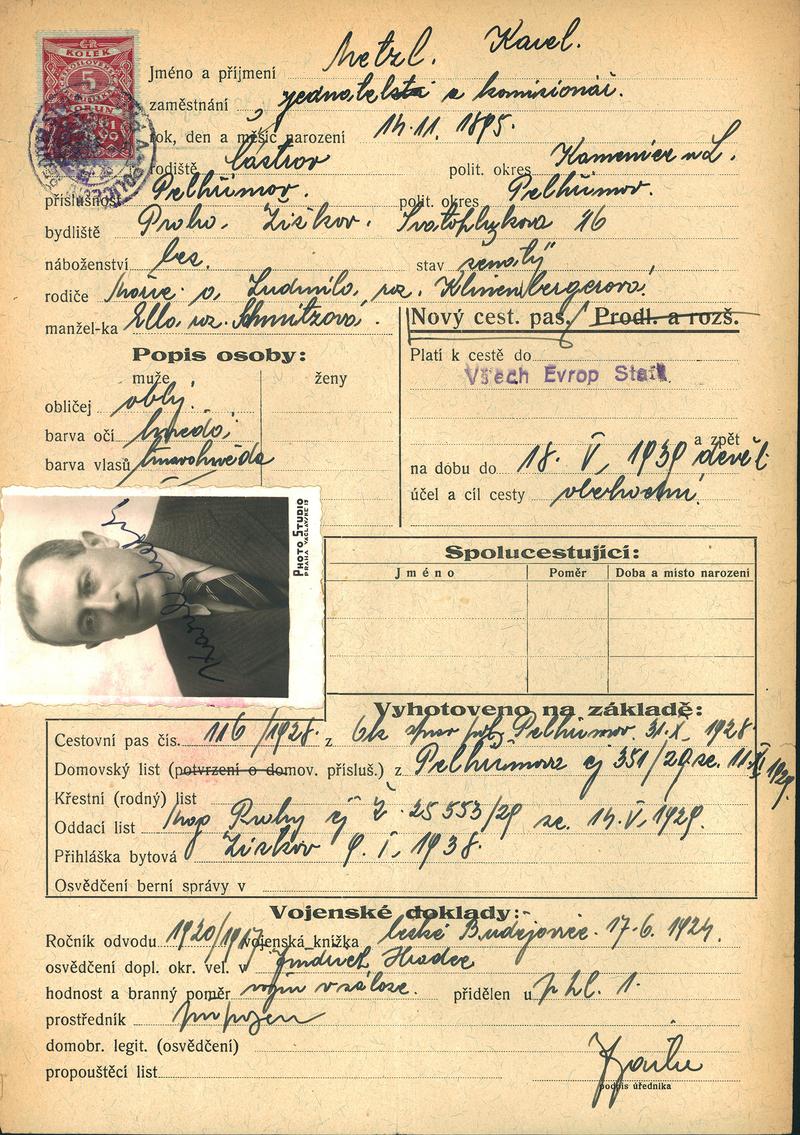 ČR
KOLEK
5
KORUN
Jméno a příjmení Metzl. Karel.
zaměstnání jednatel a komisionář.
rok, den a měsíc narození 14.11. 1895.
rodiště Částrov polit. okres Kamenice n L.
příslušnost Pelhřimov. polit. okres Pelhřimov.
bydliště Praha. Žižkov. Svatoplukova 16
náboženství bez. stav ženatý
rodiče a Ludmila, roz. Klinenbergerová.
manžel-ka Ella roz. Schmitzová.
Nový cest. pas. / Prodl. a rozš.
Popis osoby:
muže ženy
Platí k cestě do
Všech Evrop Stát.
obličej oblý.
barva očí hnědé,
barva vlasů tmavohnědá
a zpět
na dobu do 18. V, 1939 devět
účel a cíl cesty obchodní
PHOTO STUDIO
PRAHA VÁCLAVSKÉ
Karel Metzl
Spolucestující:
Jméno Poměr Doba a místo narození
Vyhotoveno na základě:
Cestovní pas čís. 116/1928. z Pelhřimov. 31.X. 1928.
Domovský list (potvrzení o domov. přísluš.) z Pelhřimova čj 351/29 ze. 11. 1929.
Křestní (rodný) list
Oddací list Mag Prahy čj ž. 25553/29 ze. 14.V,1929.
Přihláška bytová Žižkov 9. I, 1938.
Osvědčení berní správy v
Vojenské doklady:
Ročník odvodu 1920/1917 vojenská knížka České Budějovice. 17.6. 1924.
osvědčení dopl. okr. vel. v Jindřich Hradec
hodnost a branný poměr vojín v záloze. přidělen u p pl. 1.
prostředník
domobr. legit. (osvědčení)
propouštěcí list
podpis úředníka